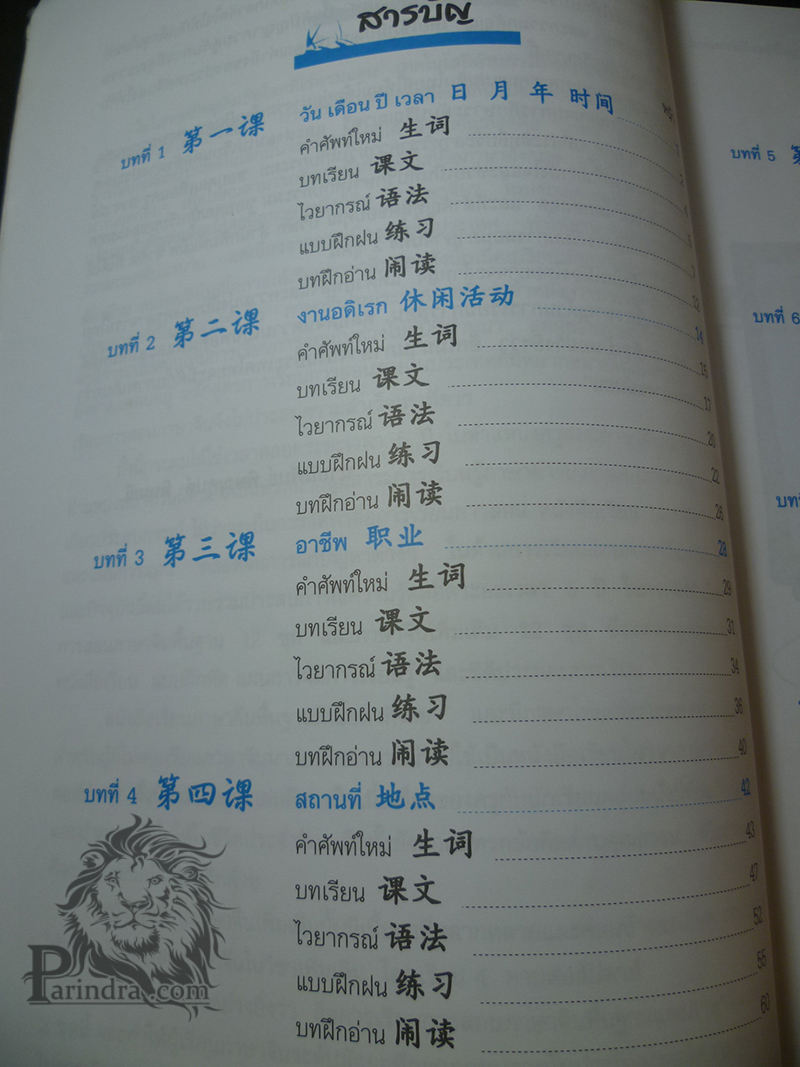 สารบัญ
บทที่ 1 第一课 วัน เดือน ปี เวลา 日 月 年 时间 1
คำศัพท์ใหม่ 生词
บทเรียน 课文
ไวยากรณ์ 语法
แบบฝึกฝน 练习 7
บทฝึกอ่าน 闹读 12
บทที่ 2 第二课 งานอดิเรก 休闲活动 14
คำศัพท์ใหม่ 生词 15
บทเรียน 课文 17
ไวยากรณ์ 语法 20
แบบฝึกฝน 练习 22
บทฝึกอ่าน 闹读 26
บทที่ 3 第三课 อาชีพ 职业 28
คำศัพท์ใหม่ 生词 29
บทเรียน 课文 31
ไวยากรณ์ 语法 34
แบบฝึกฝน 练习 36
บทฝึกอ่าน 闹读 40
บทที่ 4 第四课 สถานที่ 地点 42
คำศัพท์ใหม่ 生词 43
บทเรียน 课文 47
ไวยากรณ์ 语法 52
แบบฝึกฝน 练习 55
บทฝึกอ่าน 闹读 60
บทที่ 5
บทที่ 6
Parindra.com